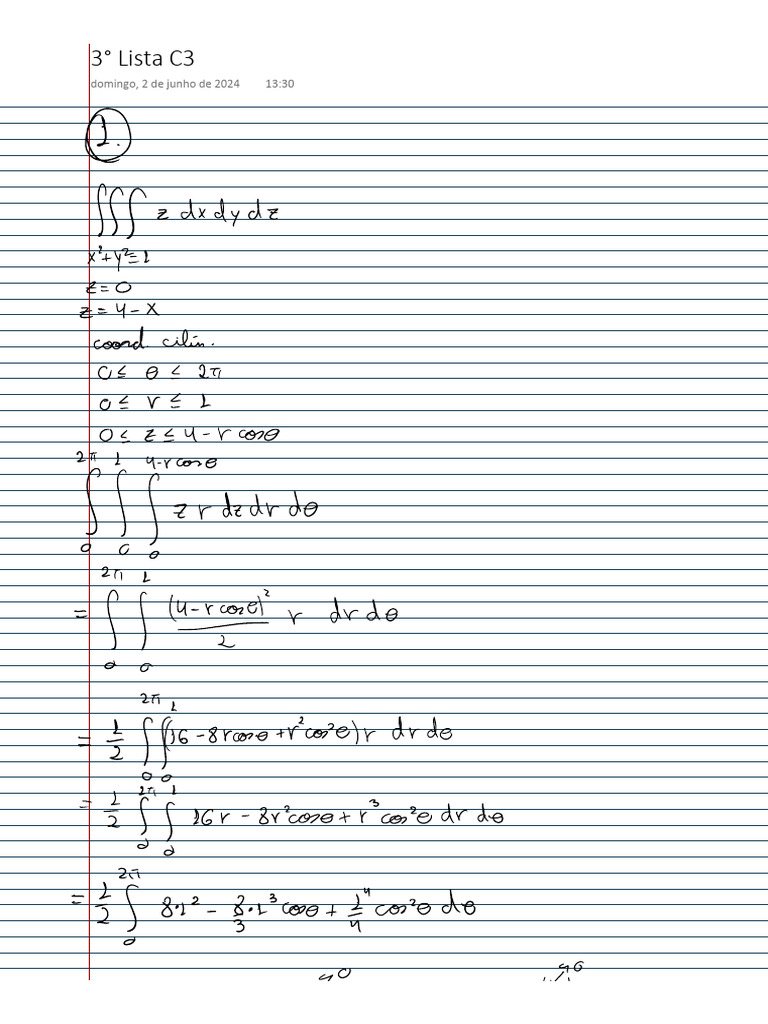 3° Lista C3
domingo, 2 de junho de 2024 13:30
1.
∫∫∫ z dx dy dz
x²+y²=1
z=0
z=4-x
coord. cilín.
0≤ θ ≤ 2π
0≤ r ≤ 1
0≤ z ≤ 4-r cosθ
∫₀^2π ∫₀^1 ∫₀^4-r cosθ z r dz dr dθ
= ∫₀^2π ∫₀^1 (4-r cosθ)²/2 r dr dθ
= 1/2 ∫₀^2π ∫₀^1 (16-8r cosθ+r²cos²θ) r dr dθ
= 1/2 ∫₀^2π ∫₀^1 16r - 8r²cosθ + r³cos²θ dr dθ
= 1/2 ∫₀^2π 8·1² - 8/3·1³ cosθ + 1⁴/4 cos²θ dθ